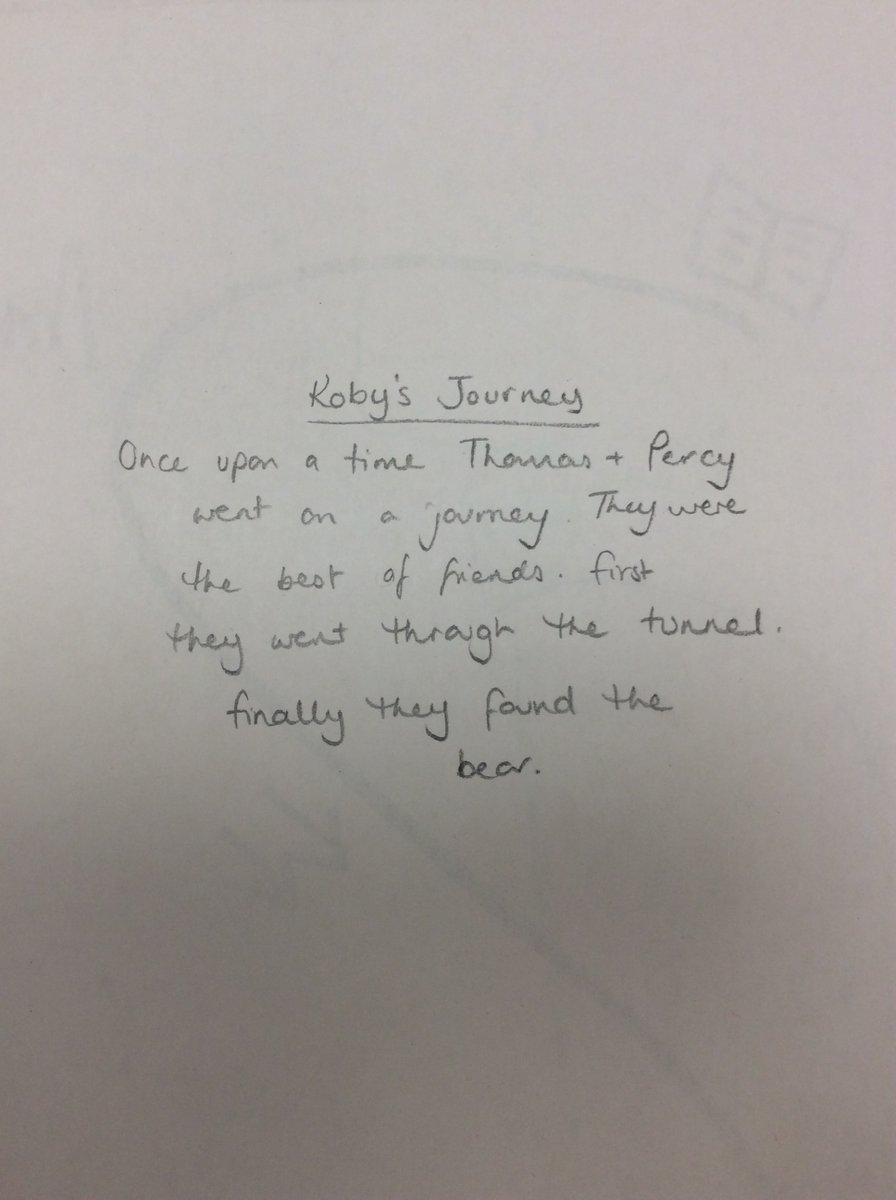 Koby's Journey
Once upon a time Thomas + Percy
went on a journey. They were
the best of friends. first
they went through the tunnel.
finally they found the
bear.